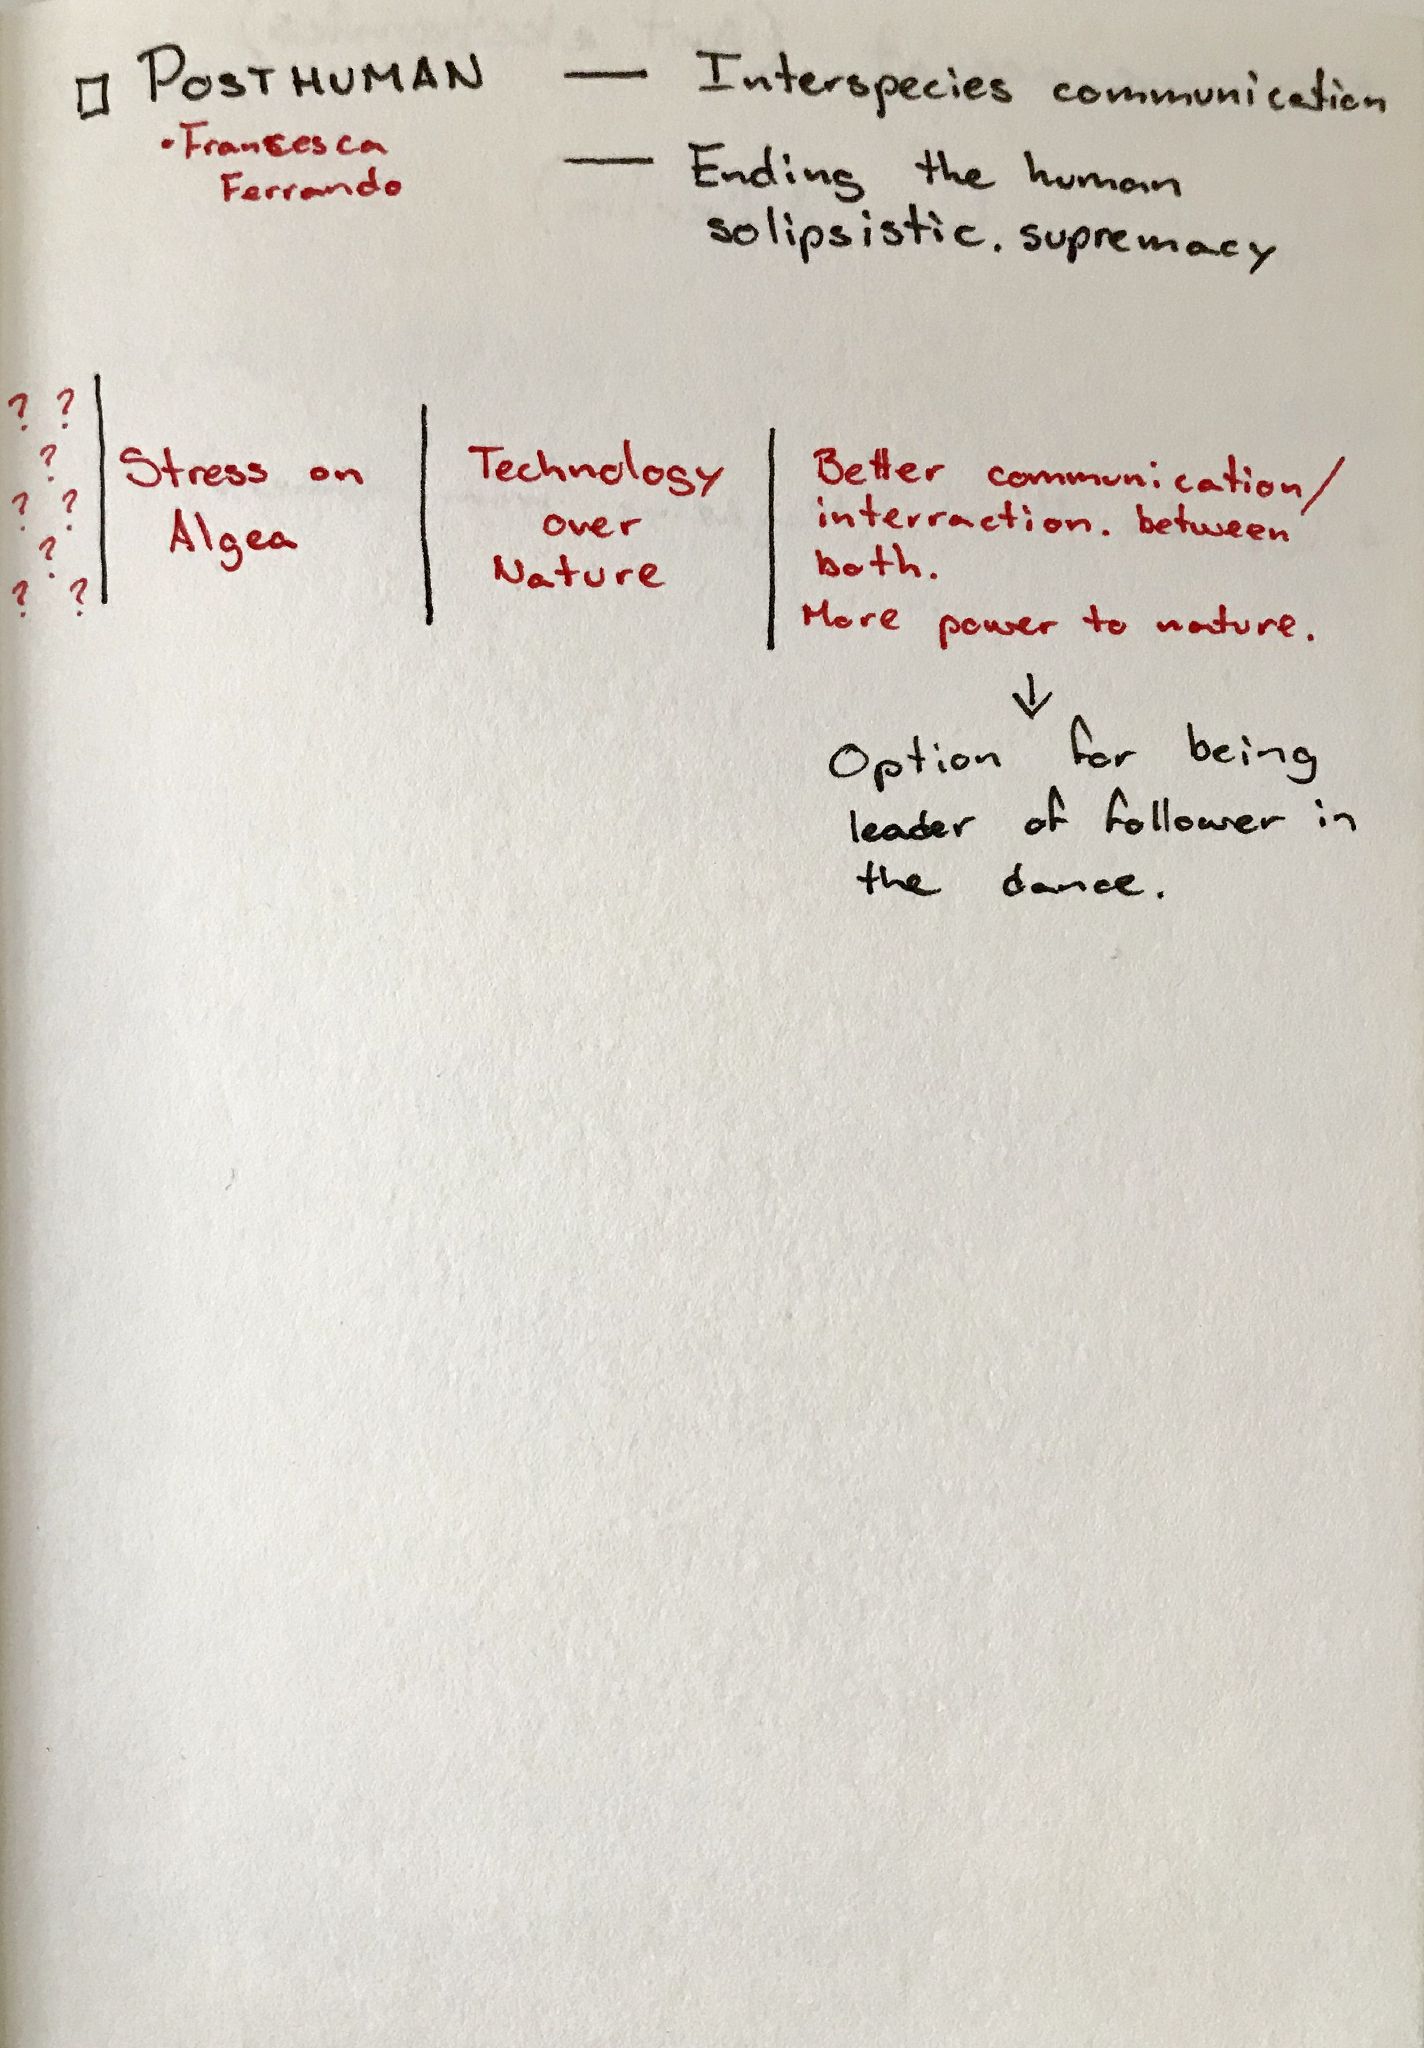 POSTHUMAN — Interspecies communication
• Francesca
Ferrando
— Ending the human
solipsistic. supremacy
? ?
?
? ?
?
? ?
Stress on
Algea
Technology
over
Nature
Better communication/
interraction. between
both.
More power to nature.
↓
Option for being
leader of follower in
the dance.